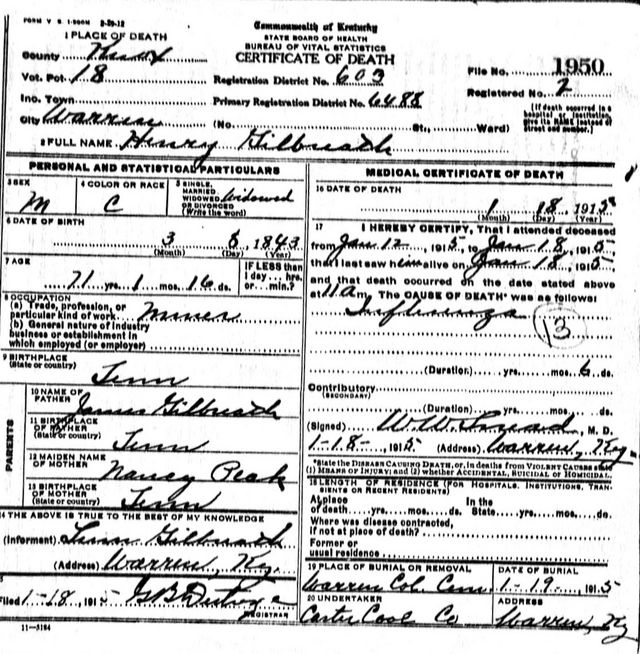 FORM V. S. 1-500M 2-29-12
Commonwealth of Kentucky
STATE BOARD OF HEALTH
BUREAU OF VITAL STATISTICS
CERTIFICATE OF DEATH
1 PLACE OF DEATH
County Knox
Vot. Pct. 18
Registration District No. 603
File No. 1950
Inc. Town
Primary Registration District No. 6488
Registered No. 2
City Warren (No. St., Ward)
(If death occurred in a hospital or institution, give its NAME instead of street and number.)
2 FULL NAME Henry Gilbreath
PERSONAL AND STATISTICAL PARTICULARS
3 SEX M
4 COLOR OR RACE C
5 SINGLE, MARRIED, WIDOWED OR DIVORCED (Write the word) Widowed
6 DATE OF BIRTH
3 8 1843
(Month) (Day) (Year)
7 AGE
71 yrs. 1 mos. 16 ds.
IF LESS than 1 day... hrs. or... min.?
8 OCCUPATION
(a) Trade, profession, or particular kind of work Miner
(b) General nature of industry business or establishment in which employed (or employer)
9 BIRTHPLACE
(State or country) Tenn
PARENTS
10 NAME OF FATHER James Gilbreath
11 BIRTHPLACE OF FATHER (State or country) Tenn
12 MAIDEN NAME OF MOTHER Nancy Peak
13 BIRTHPLACE OF MOTHER (State or country) Tenn
14 THE ABOVE IS TRUE TO THE BEST OF MY KNOWLEDGE
(Informant) Gilbreath
(Address) Warren, Ky.
Filed 1-18, 1915
REGISTRAR
11-3184
MEDICAL CERTIFICATE OF DEATH
16 DATE OF DEATH
1 18, 1915
(Month) (Day) (Year)
17 I HEREBY CERTIFY, That I attended deceased
from Jan 12, 1915, to Jan 18, 1915
that I last saw him alive on Jan 18, 1915,
and that death occurred on the date stated above
at 11 a m. The CAUSE OF DEATH* was as follows:
Influenza
13
(Duration) yrs. mos. 6 ds.
Contributory
(SECONDARY)
(Duration) yrs. mos. ds.
(Signed) W.W. M. D.
1-18-, 1915 (Address) Warren, Ky.
*State the DISEASE CAUSING DEATH, or, in deaths from VIOLENT CAUSES state (1) MEANS OF INJURY; and (2) whether ACCIDENTAL, SUICIDAL or HOMICIDAL.
18 LENGTH OF RESIDENCE (FOR HOSPITALS, INSTITUTIONS, TRANSIENTS OR RECENT RESIDENTS)
At place of death yrs. mos. ds. In the State yrs. mos. ds.
Where was disease contracted,
if not at place of death?
Former or
usual residence
19 PLACE OF BURIAL OR REMOVAL
Warren Col. Cem
DATE OF BURIAL
1-19-, 1915
20 UNDERTAKER
Carter Coal Co
ADDRESS
Warren, Ky